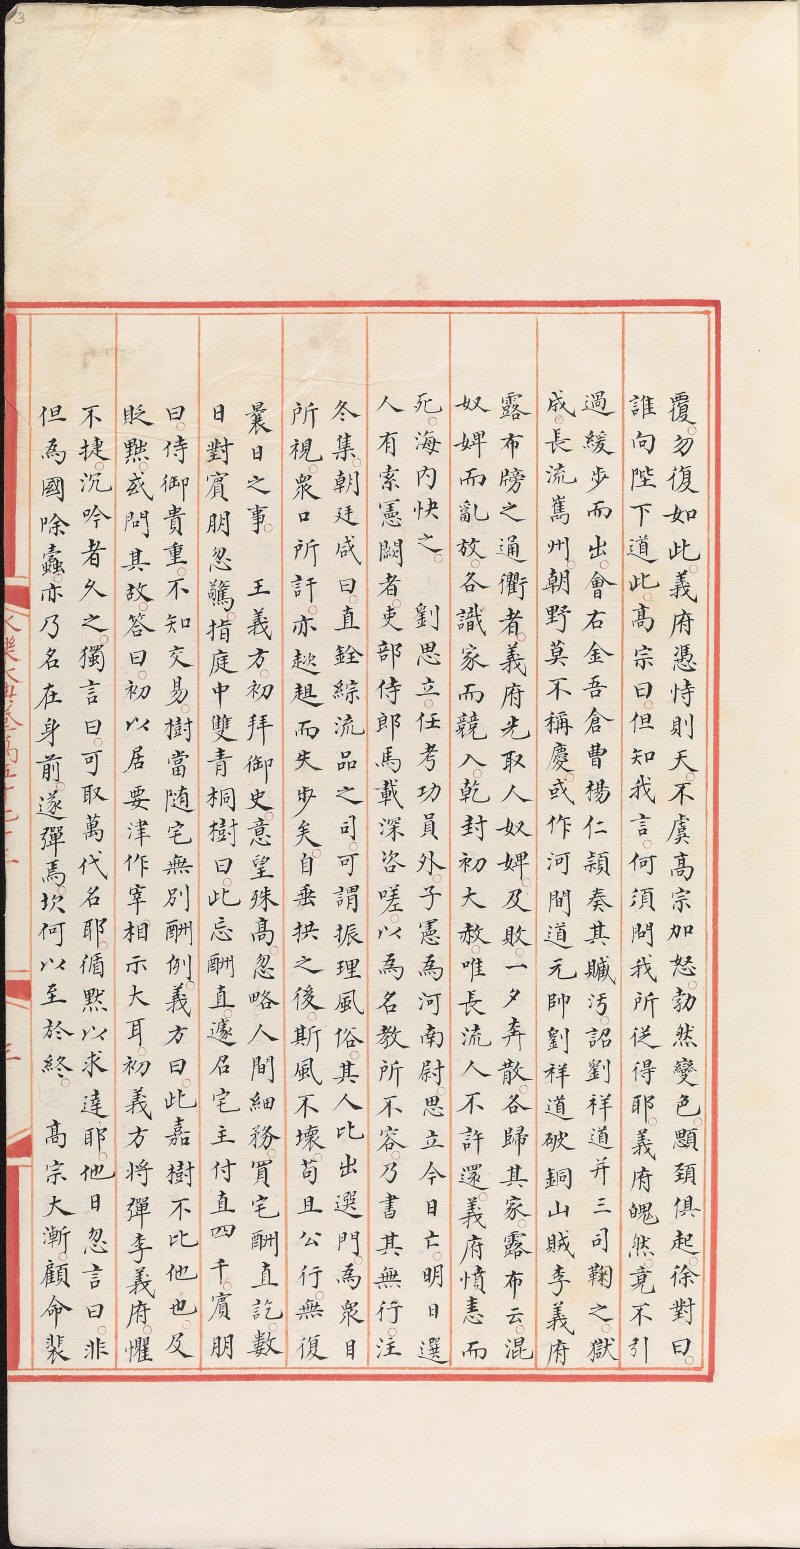 覆。勿復如此。義府憑恃則天。不虞高宗加怒。勃然變色。顋頸俱起。徐對曰。
誰向陛下道此。高宗曰。但知我言。何須問我所從得耶。義府然。竟不引
過緩步而出。會右金吾倉曹楊仁穎奏其贓汚。詔劉祥道并三司鞠之。獄
成。長流嶲州。朝野莫不稱慶。或作河間道元帥劉祥道破銅山賊李義府
露布牓之通衢者。義府先取人奴婢。及敗。一夕奔散。各歸其家。露布云。混
奴婢而亂放。各識家而競入。乾封初大赦。唯長流人不許還。義府憤恚而
死。海内快之。 劉思立。任考功員外。子憲為河南尉。思立今日亡。明日選
人有索憲闕者。吏部侍郎馬載深咨嗟。以為名教所不容。乃書其無行。注
冬集。朝廷咸曰。直銓綜流品之司。可謂振理風俗。其人比出選門。為衆目
所視。衆口所訐。亦趑趄而失步矣。自垂拱之後。斯風不壞。苟且公行。無復
曩日之事。 王義方。初拜御史。意望殊高。忽略人間細務。買宅酬直訖。數
日對賓朋忽驚。指庭中雙青桐樹曰。此忘酬直。遽召宅主付直四千。賓朋
曰。侍御貴重。不知交易。樹當随宅無別酬例。義方曰。此嘉樹不比他也。及
貶黜。或問其故。答曰。初以居要津作宰。相示大耳。初義方將彈李義府。懼
不捷。沉吟者久之。獨言曰。可取萬代名耶。循黙以求達耶。他日忽言曰。非
但為國除蠹。亦乃名在身前。遂彈焉。坎何以至於終。 高宗大漸。顧命裴